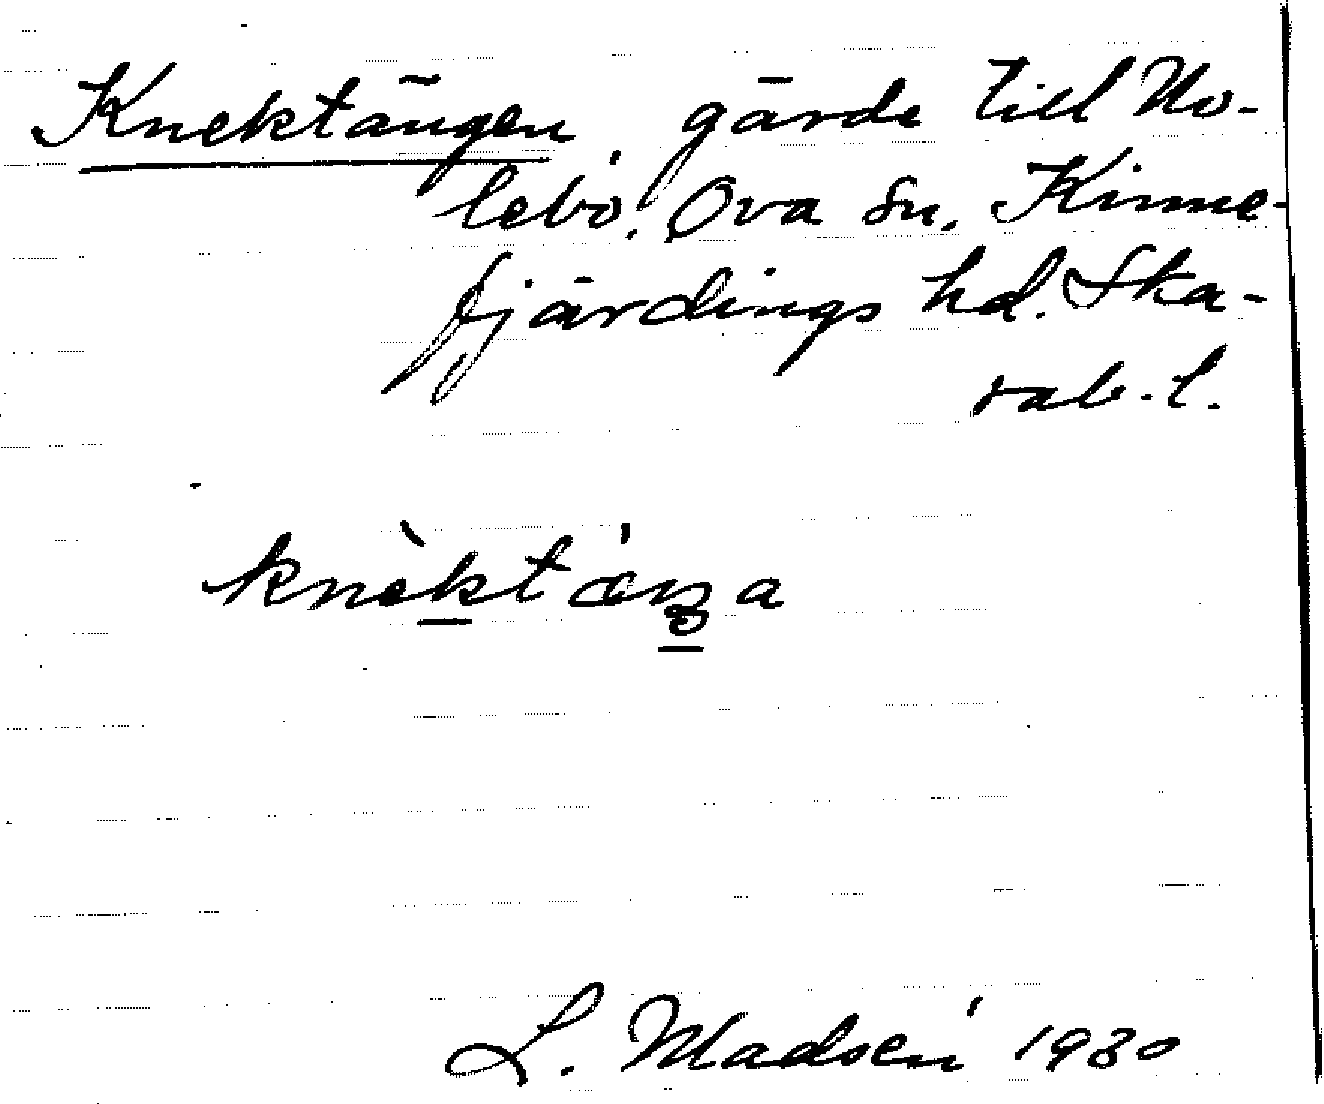 Knektängen, gärde till No-
lebo. Ova sn. Kinne-
fjärdings hd. Ska-
rab. l.
knèktæŋa
L. Madsén 1930